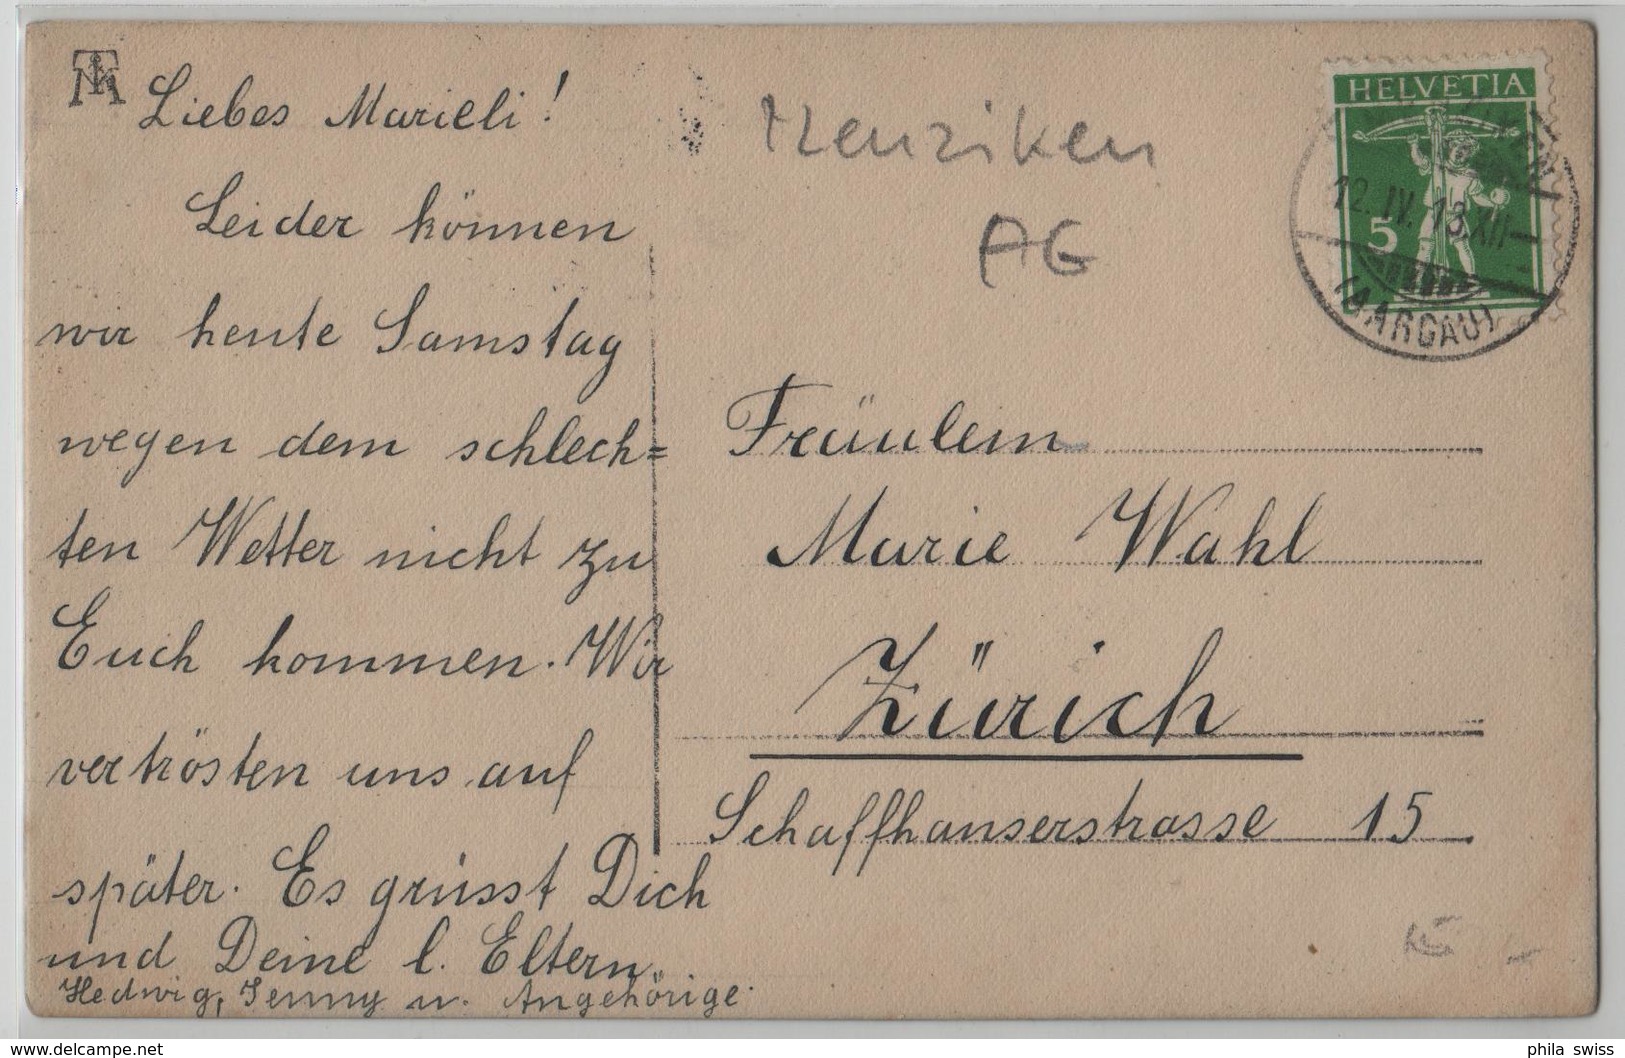 Liebes Marieli!
Leider können
wir heute Samstag
wegen dem schlech=
ten Wetter nicht zu
Euch kommen. Wir
vertrösten uns auf
später. Es grüsst Dich
und Deine l. Eltern.
Hedwig, Jenny u. Angehörige.
Menziken
AG
HELVETIA
5
12.IV.13.XII
(AARGAU)
Fräulein
Marie Wahl
Zürich
Schaffhauserstrasse 15
phila swiss